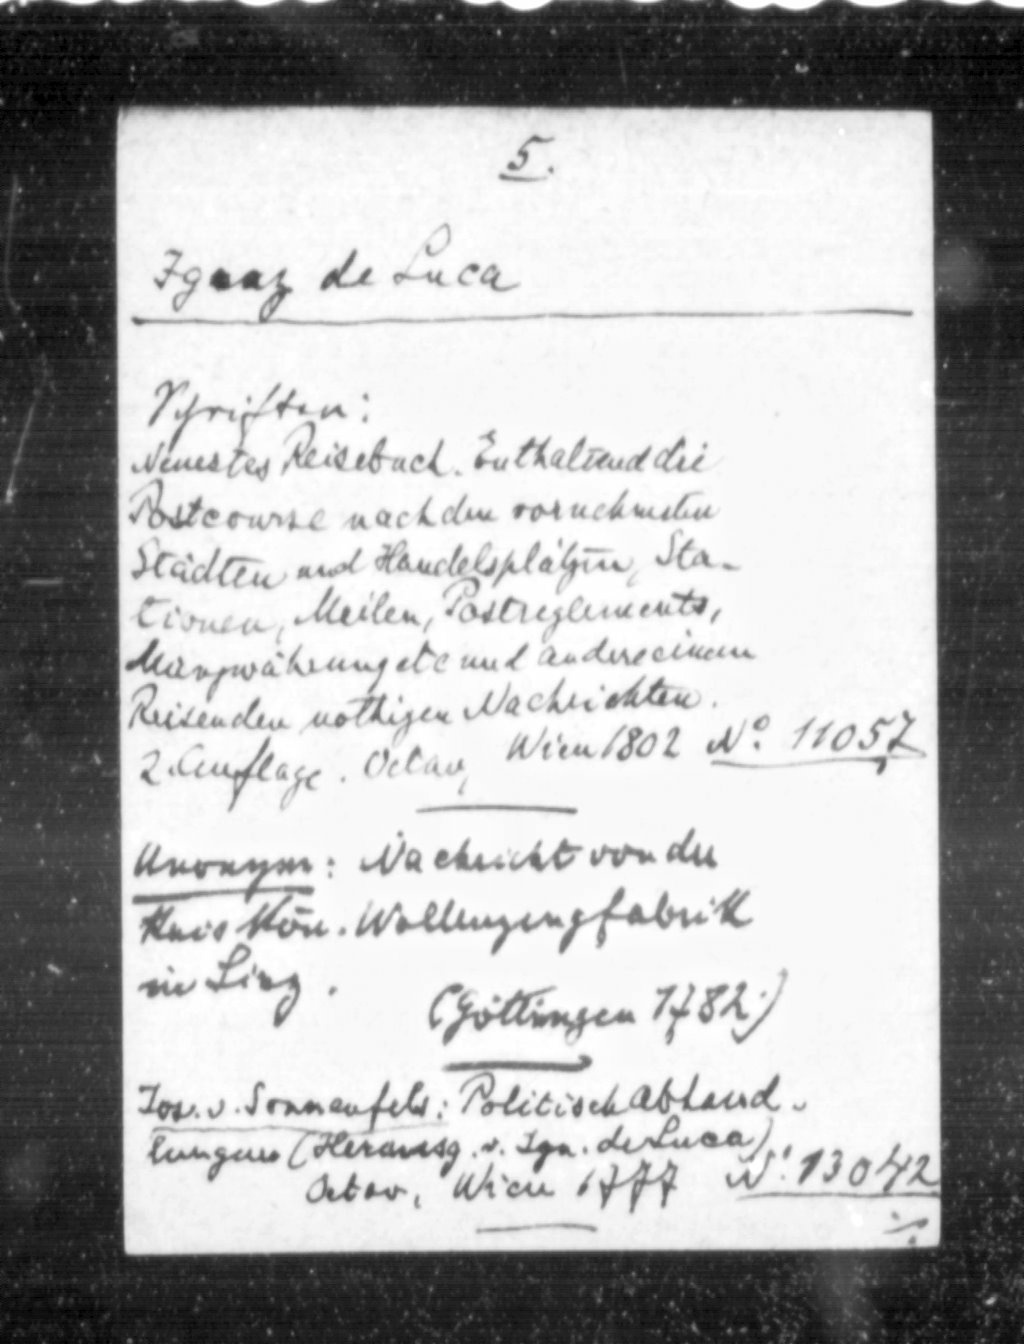 5.
Ignaz de Luca
Schriften:
Neuestes Reisebuch. Enthaltend die
Postcourse nach den vornehmsten
Städten und Handelsplätzen, Sta-
tionen, Meilen, Postreglements,
Münzwährung etc und andere einem
Reisenden nöthigen Nachrichten.
2. Auflage. Octav, Wien 1802 No. 11057
Anonym: Nachricht von der
Kais Kön. Wollenzeugfabrik
in Linz.
(Göttingen 1782.)
Jos. v. Sonnenfels: Politisch Abhand-
lungen (Herausg. v. Ign. de Luca)
Octav, Wien 1777 No. 13042